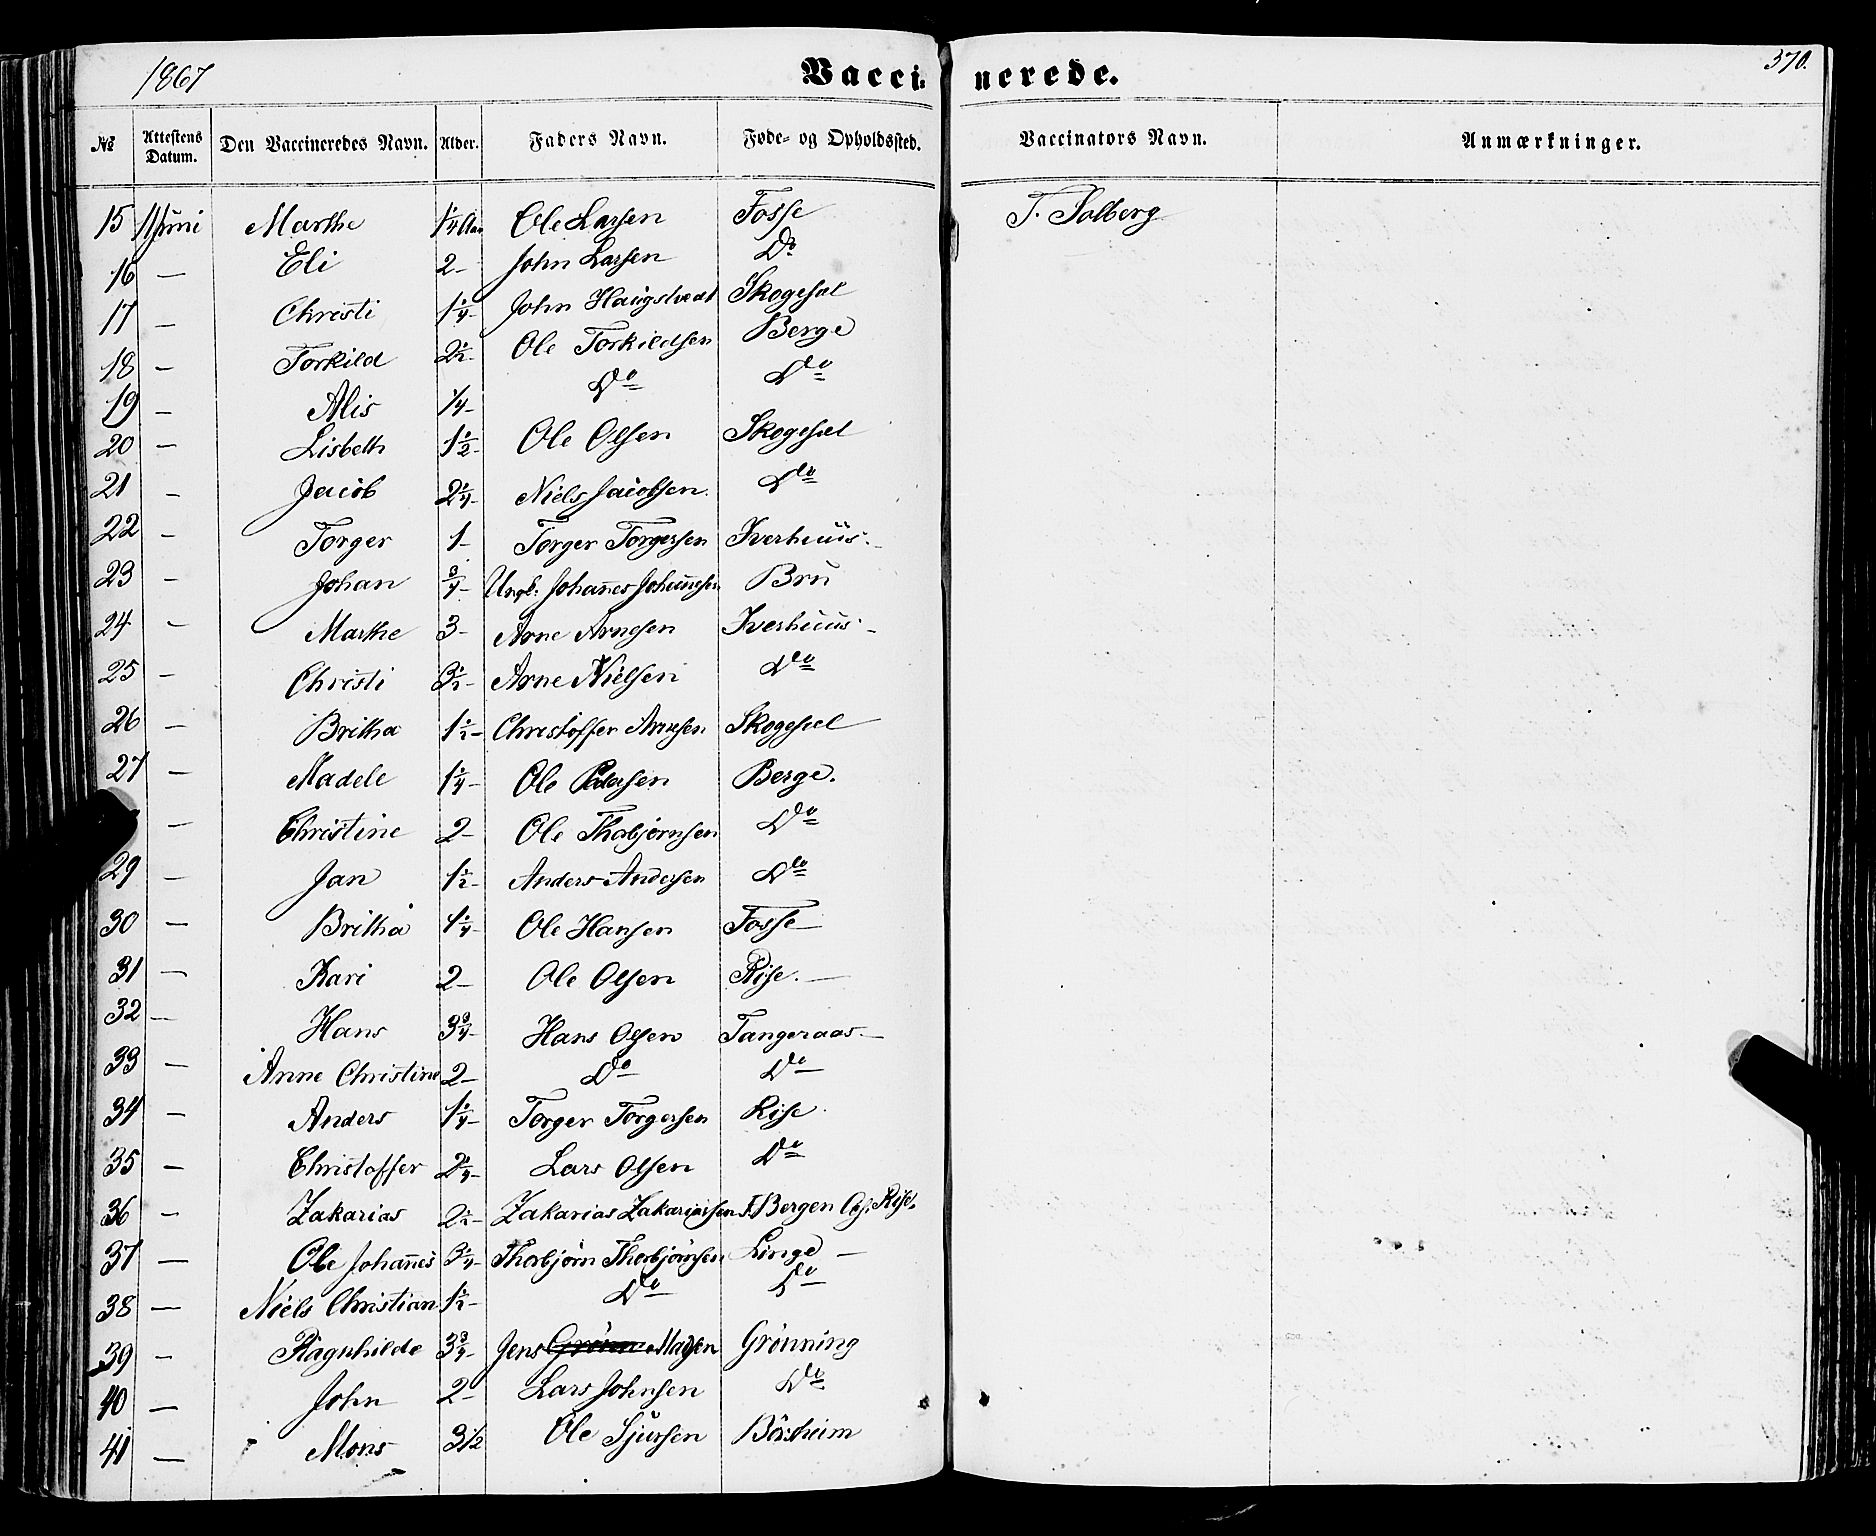 1867 Vacci- nerede. 370.
№ Attestens Datum. Den Vaccineredes Navn. Alder. Faders Navn. Føde- og Opholdssted. Vaccinators Navn. Anmærkninger.
15 11 Juni Marthe 1/4 Aar Ole Larsen Fosse T. Solberg
16 — Eli 2 - John Larsen Do
17 — Christi 1 1/4 - John Haugstvedt Skogesæl
18 — Torkild 2 1/2 - Ole Torkildsen Berge
19 — Alis 1/4 - Do Do
20 — Lisbeth 1 1/2 - Ole Olsen Skogesæl
21 — Jacob 2 1/4 - Niels Jacobsen. Do
22 — Torger 1 - Torger Torgersen Iverhuus. -
23 — Johan 3/4 - Ungk: Johannes Johannesen Bru
24 — Marthe 3 - Arne Arnesen Iverhuus -
25 — Christi 3 1/2 - Arne Nielsen Do
26 — Britha 1 1/2 - Christoffer Arnesen Skogesæl
27 — Madele 1 1/4 - Ole Pedersen Berge.
— Christine 2 - Ole Thorbjørnsen Do
29 — Jan 1 1/2 - Anders Andersen Do
30 — Britha 1 1/4 - Ole Hansen Fosse —
31 — Kari 2 - Ole Olsen Rise. —
32 — Hans 3 3/4 - Hans Olsen Tangeraas —
33 — Anne Christine 2 - Do Do
34 — Anders 1 1/4 - Torger Torgersen Rise.
35 — Christoffer 2 1/4 - Lars Olsen Do
36 — Zakarias 2 1/2 - Zakarias Zakariasen F. Bergen Op. Rise.
37 — Ole Johannes 3 1/4 - Thorbjörn Thorbjörnsen Linge —
38 — Niels Christian 1 1/2 - Do Do
39 — Ragnhilde 3 3/4 - Jens Madsen Grönning
40 — John 2 - Lars Johnsen Do
41 — Mons 3 1/2 Ole Sjursen Börsheim